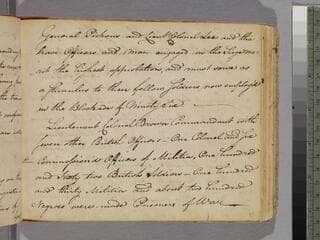 General Pickens and Lieut Colonel Lee and the
brave Officers and Men engaged in the Siege
the highest approbation, and must serve as
a stimulus to their fellow Soldiers now employ'd
in the Blockade of Ninety Six
Lieutenant Colonel Brown Commandant with
seven other British Officers - One Colonel and six
Commission'd Officers of Militia, One hundred
and sixty two British Soldiers - One hundred
and thirty Militia and about two hundred
Negroes were made Prisoners of War